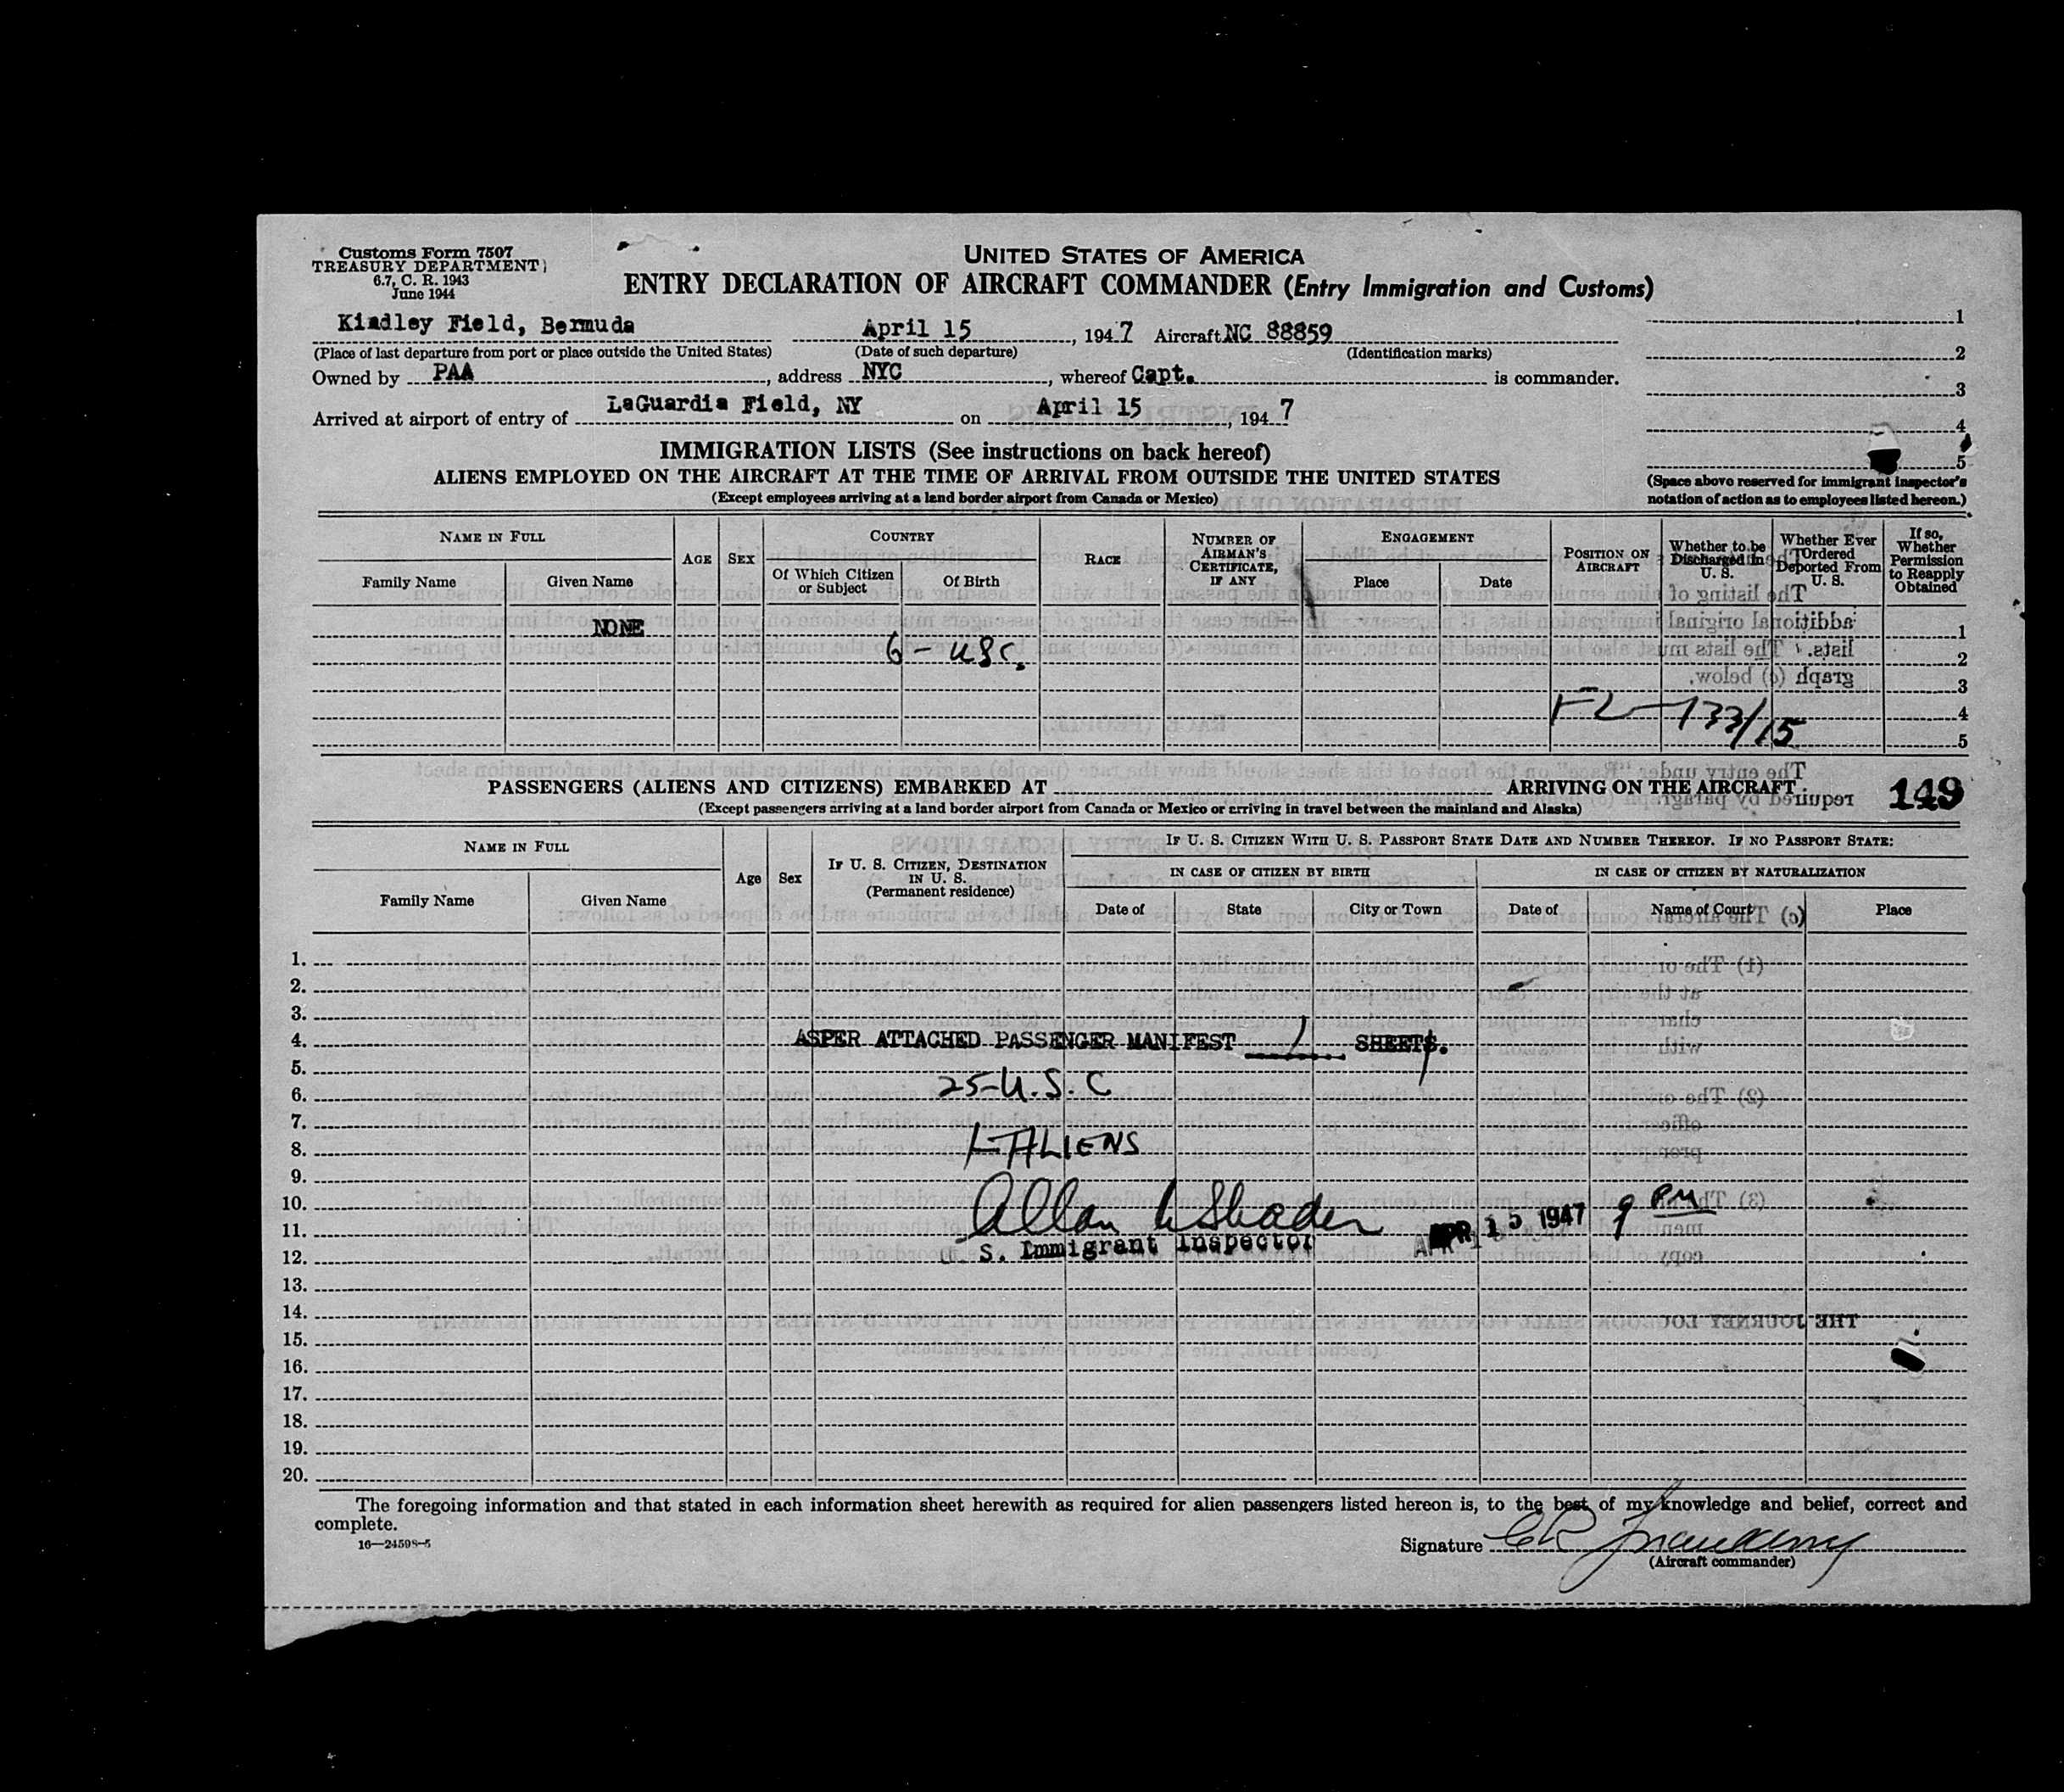 Customs Form 7507
TREASURY DEPARTMENT
6.7, C. R. 1943
June 1944
UNITED STATES OF AMERICA
ENTRY DECLARATION OF AIRCRAFT COMMANDER (Entry Immigration and Customs)
Kindley Field, Bermuda April 15, 1947 Aircraft NC 88859
(Place of last departure from port or place outside the United States) (Date of such departure) (Identification marks)
Owned by PAA, address NYC, whereof Capt. is commander.
Arrived at airport of entry of LaGuardia Field, NY on April 15, 1947
1
2
3
4
5
(Space above reserved for immigrant inspector's
notation of action as to employees listed hereon.)
IMMIGRATION LISTS (See instructions on back hereof)
ALIENS EMPLOYED ON THE AIRCRAFT AT THE TIME OF ARRIVAL FROM OUTSIDE THE UNITED STATES
(Except employees arriving at a land border airport from Canada or Mexico)
NAME IN FULL
Family Name
Given Name
AGE
SEX
COUNTRY
Of Which Citizen
or Subject
Of Birth
RACE
NUMBER OF
AIRMAN'S
CERTIFICATE,
IF ANY
ENGAGEMENT
Place
Date
POSITION ON
AIRCRAFT
Whether to be
Discharged in
U. S.
Whether Ever
Ordered
Deported From
U. S.
If so,
Whether
Permission
to Reapply
Obtained
NONE 1
6 - USC. 2
3
FL-133/15 4
5
PASSENGERS (ALIENS AND CITIZENS) EMBARKED AT ARRIVING ON THE AIRCRAFT 149
(Except passengers arriving at a land border airport from Canada or Mexico or arriving in travel between the mainland and Alaska)
NAME IN FULL
Family Name
Given Name
Age
Sex
IF U. S. CITIZEN, DESTINATION
IN U. S.
(Permanent residence)
IF U. S. CITIZEN WITH U. S. PASSPORT STATE DATE AND NUMBER THEREOF. IF NO PASSPORT STATE:
IN CASE OF CITIZEN BY BIRTH
IN CASE OF CITIZEN BY NATURALIZATION
Date of
State
City or Town
Date of
Name of Court
Place
1.
2.
3.
4. ASPER ATTACHED PASSENGER MANIFEST 1 SHEETS.
5.
6. 25-U.S.C
7.
8. 1-ALIENS
9.
10. Allan Shader APR 15 1947 9 PM
11.
12. U. S. Immigrant Inspector
13.
14.
15.
16.
17.
18.
19.
20.
The foregoing information and that stated in each information sheet herewith as required for alien passengers listed hereon is, to the best of my knowledge and belief, correct and
complete.
16—24598-5
Signature
(Aircraft commander)